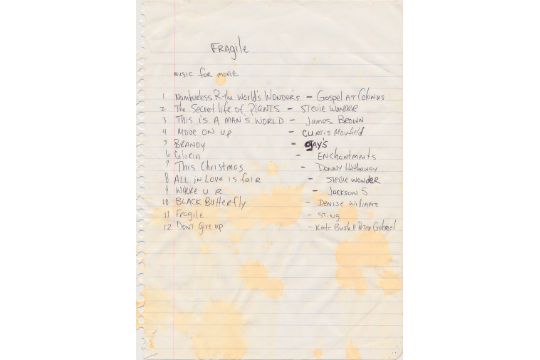 FRagile
music for movie
1 Numberless R the World's Wonders - Gospel AT Colonus
2 The Secret life of PLANTS - STEVIE WONDER
3 THIS is A MAN'S WORLD - James BROWN
4 MOVE ON UP - CURTIS Mayfield
5 BRANDY - OJAY'S
6 GLORIA - ENCHANTMENTS
7 This Christmas - Donny Hathaway
8 ALL in Love is fair - STEVIE WONDER
9 WHERE U R - JACKSON 5
10 BLACK Butterfly - DENISE Williams
11 Fragile - STING
12 Dont Give up - Kate Bush & Peter Gabriel